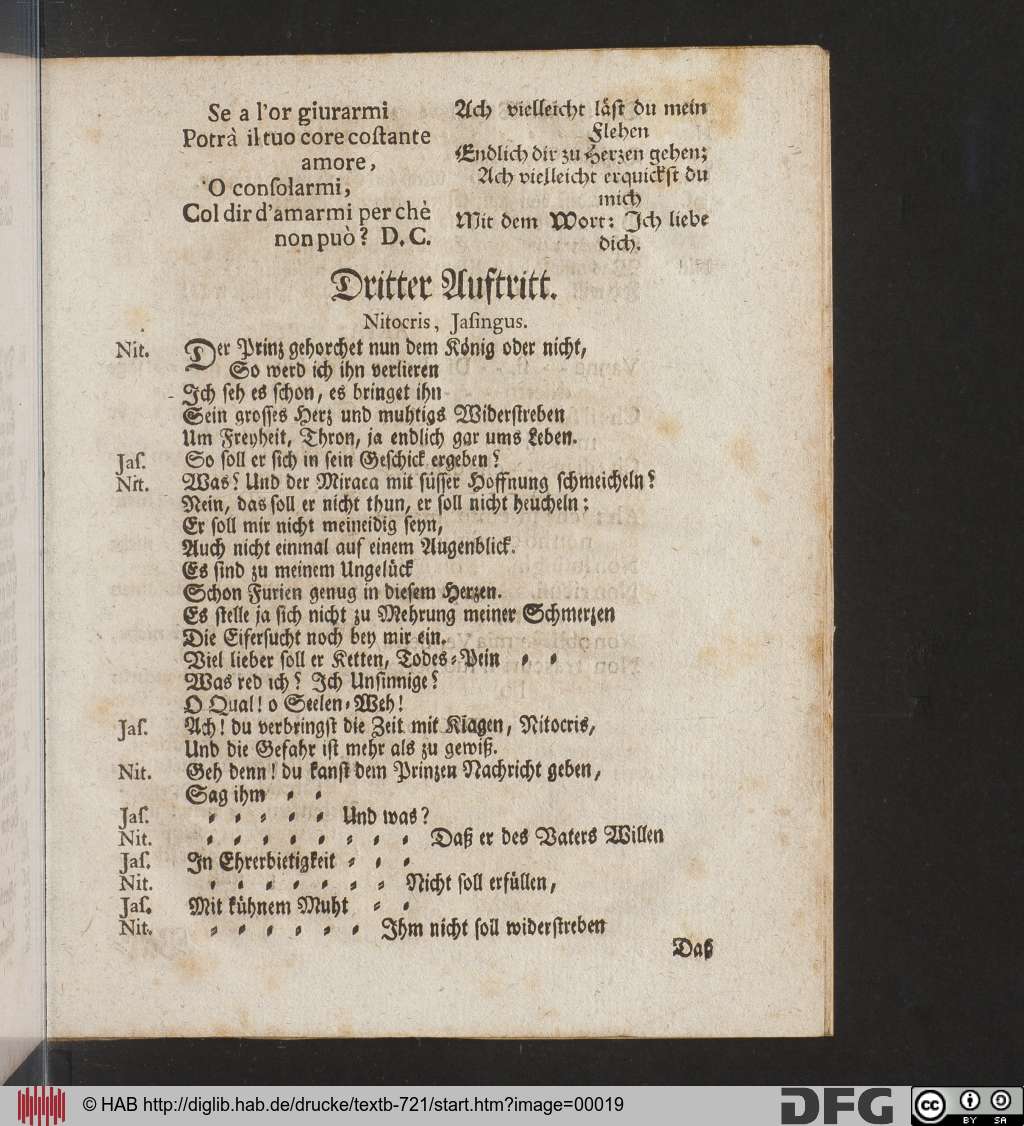 Se a l'or giurarmi
Potrà il tuo core coſtante
amore,
O conſolarmi,
Col dir d'amarmi perchè
non può? D. C.
Ach vielleicht läſt du mein
Flehen
Endlich dir zu Herzen gehen;
Ach vielleicht erquickſt du
mich
Mit dem Wort: Ich liebe
dich.
Dritter Auftritt.
Nitocris, Jaſingus.
Nit. Der Prinz gehorchet nun dem König oder nicht,
So werd ich ihn verlieren
Ich ſeh es ſchon, es bringet ihn
Sein groſſes Herz und muhtigs Widerſtreben
Um Freyheit, Thron, ja endlich gar ums Leben.
Jaſ. So ſoll er ſich in ſein Geſchick ergeben?
Nit. Was? Und der Miraea mit ſüſſer Hoffnung ſchmeicheln?
Nein, das ſoll er nicht thun, er ſoll nicht heucheln;
Er ſoll mir nicht meineidig ſeyn,
Auch nicht einmal auf einem Augenblick.
Es ſind zu meinem Ungelück
Schon Furien genug in dieſem Herzen.
Es ſtelle ja ſich nicht zu Mehrung meiner Schmerzen
Die Eiferſucht noch bey mir ein.
Viel lieber ſoll er Ketten, Todes⸗Pein ⸗ ⸗
Was red ich? Ich Unſinnige?
O Qual! o Seelen⸗Weh!
Jaſ. Ach! du verbringſt die Zeit mit Klagen, Nitocris,
Und die Gefahr iſt mehr als zu gewiß.
Nit. Geh denn! du kanſt dem Prinzen Nachricht geben,
Sag ihm ⸗ ⸗
Jaſ. ⸗ ⸗ ⸗ ⸗ ⸗ Und was?
Nit. ⸗ ⸗ ⸗ ⸗ ⸗ ⸗ ⸗ ⸗ Daß er des Vaters Willen
Jaſ. In Ehrerbietigkeit ⸗ ⸗ ⸗
Nit. ⸗ ⸗ ⸗ ⸗ ⸗ ⸗ ⸗ Nicht ſoll erfüllen,
Jaſ. Mit kühnem Muht ⸗ ⸗
Nit. ⸗ ⸗ ⸗ ⸗ ⸗ ⸗ Ihm nicht ſoll widerſtreben
Daß
© HAB http://diglib.hab.de/drucke/textb-721/start.htm?image=00019
DFG
cc BY SA